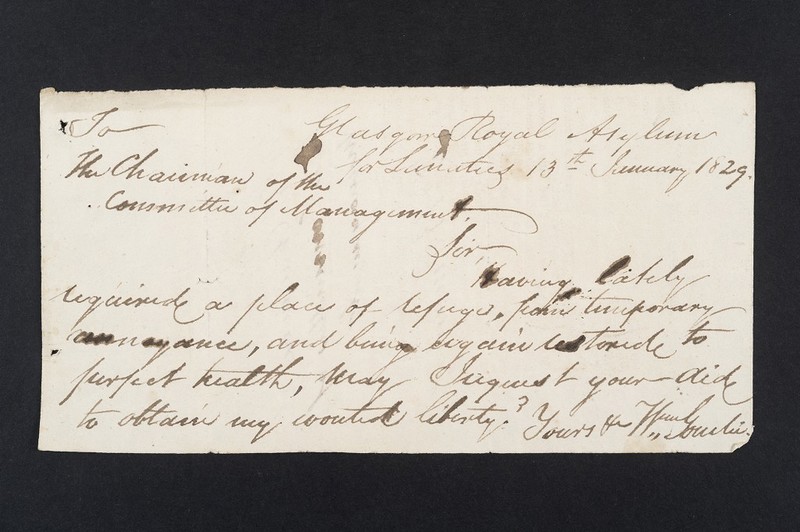 To
Glasgow Royal Asylum
for Lunatics 13th January 1829.
The Chairman of the
Committee of Management.
Sir
Having lately
required a place of refuge, from temporary
annoyance, and being again restored to
perfect health, May I request your aid
to obtain my wonted liberty? Yours &c